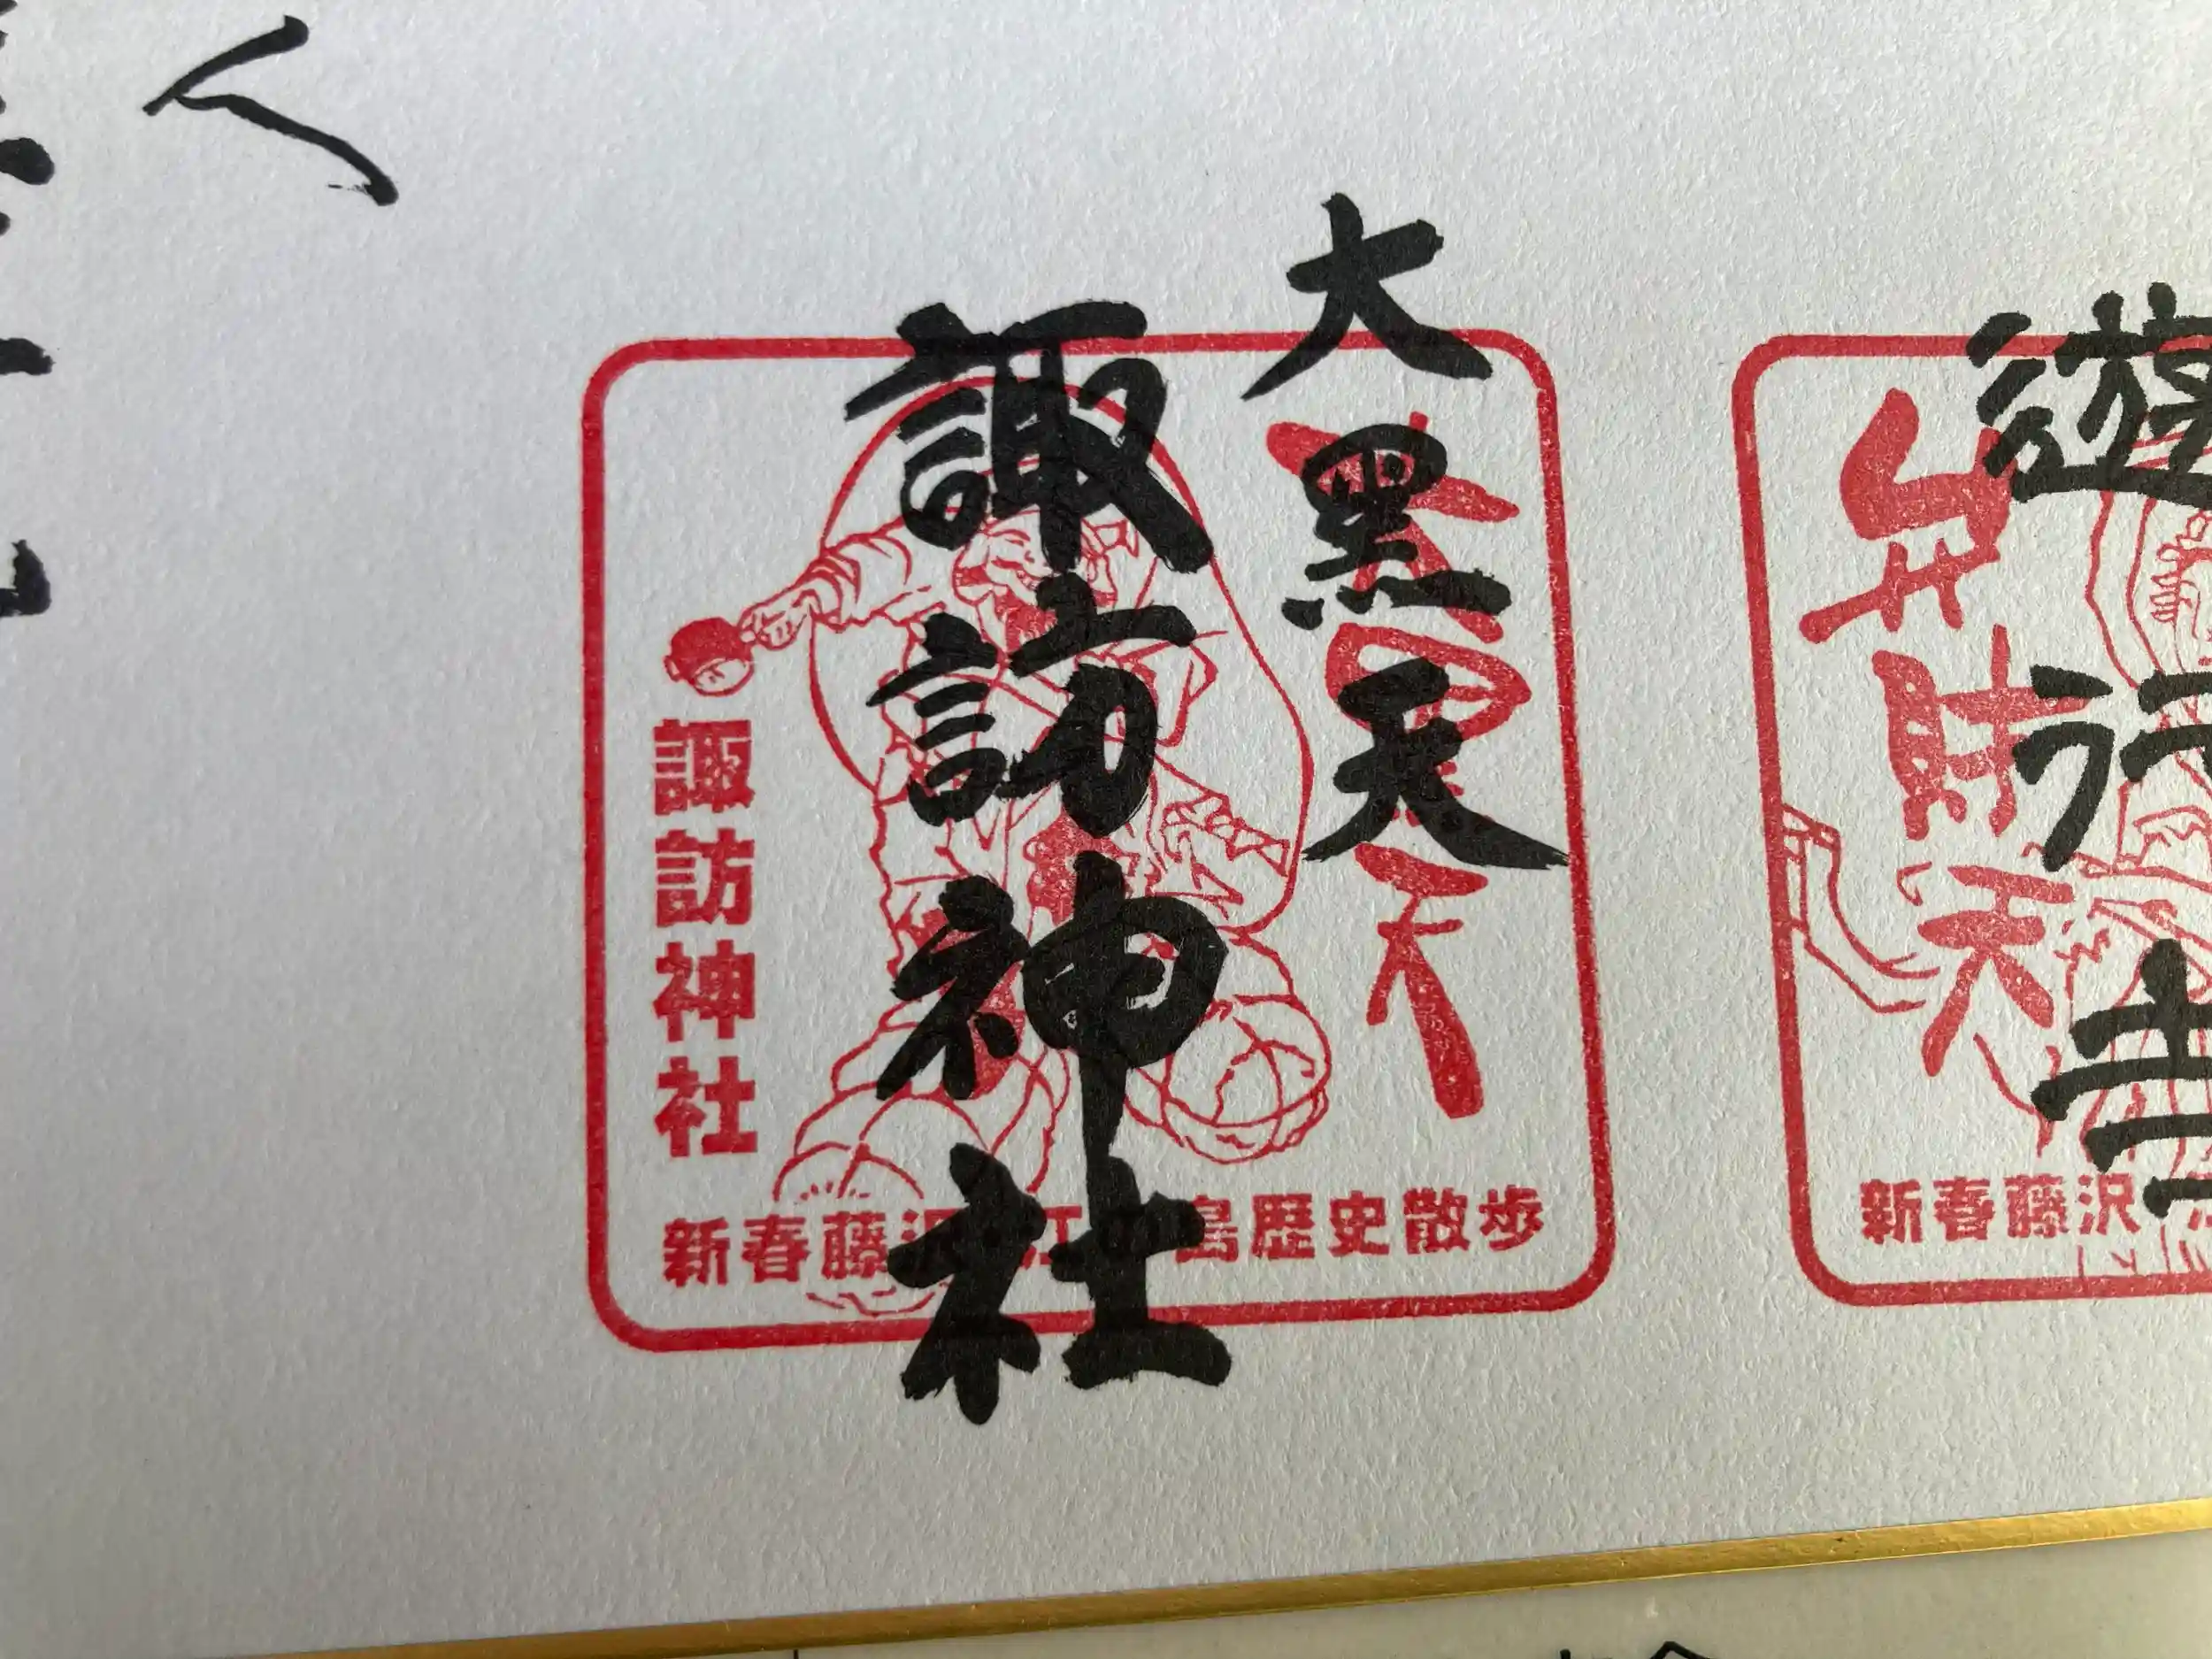 大黒天
諏訪神社
大黒天
諏訪神社
新春藤沢江島歴史散歩
遊行
弁財天
新春藤沢
人